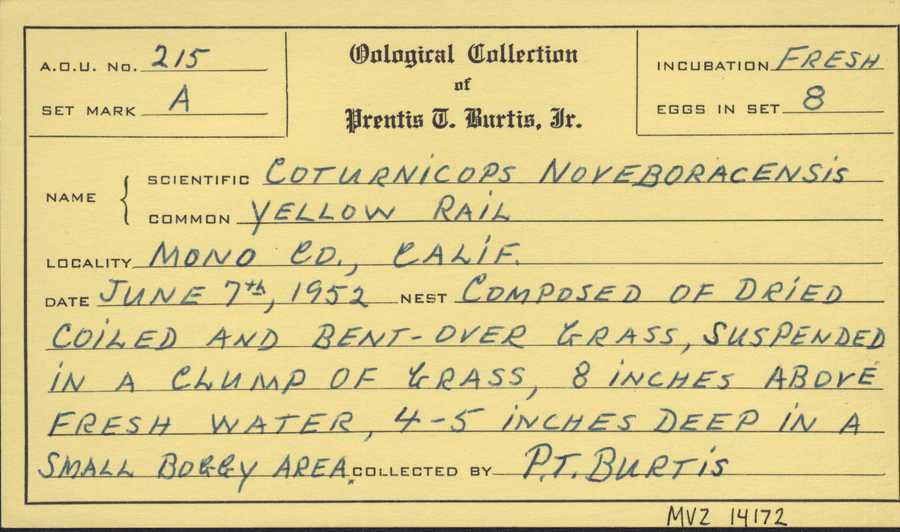 A.O.U. No. 215
SET MARK A
Oological Collection
of
Prentis T. Burtis, Jr.
INCUBATION FRESH
EGGS IN SET 8
NAME { SCIENTIFIC COTURNICOPS NOVEBORACENSIS
COMMON YELLOW RAIL
LOCALITY MONO CO., CALIF.
DATE JUNE 7th, 1952 NEST COMPOSED OF DRIED
COILED AND BENT-OVER GRASS, SUSPENDED
IN A CLUMP OF GRASS, 8 INCHES ABOVE
FRESH WATER, 4-5 INCHES DEEP IN A
SMALL BOGGY AREA. COLLECTED BY P.T. BURTIS
MVZ 14172